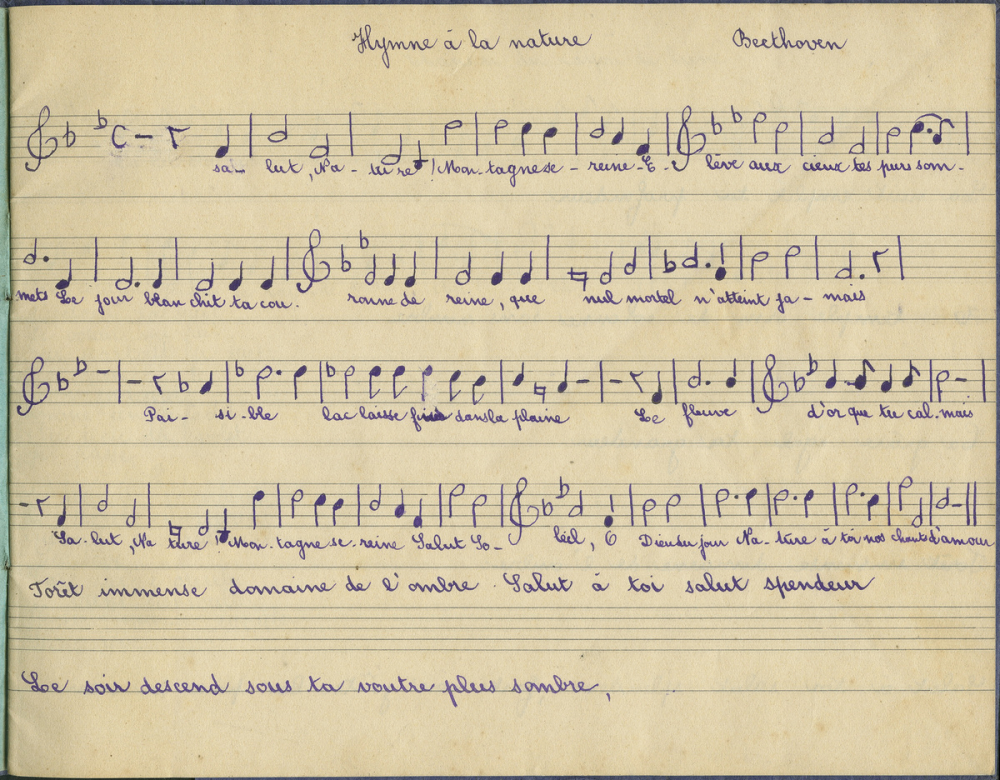 Hymne à la nature Beethoven
sa- lut, Na- ture ! Mon-tagne se- reine - E- lève aux cieux tes purs som-
mets Le jour blan chit ta cou. ronne de reine, que nul mortel n'atteint ja- mais
Pai- si- ble lac laisse dans la plaine Le fleuve d'or que tu cal. mais
Sa. lut, Na ture ! Mon. tagne se. reine Salut So- leil, O Dieu du jour Na- ture à toi nos chants d'amour
Forêt immense domaine de l'ombre. Salut à toi salut spendeur
Le soir descend sous ta voutre plus sombre,